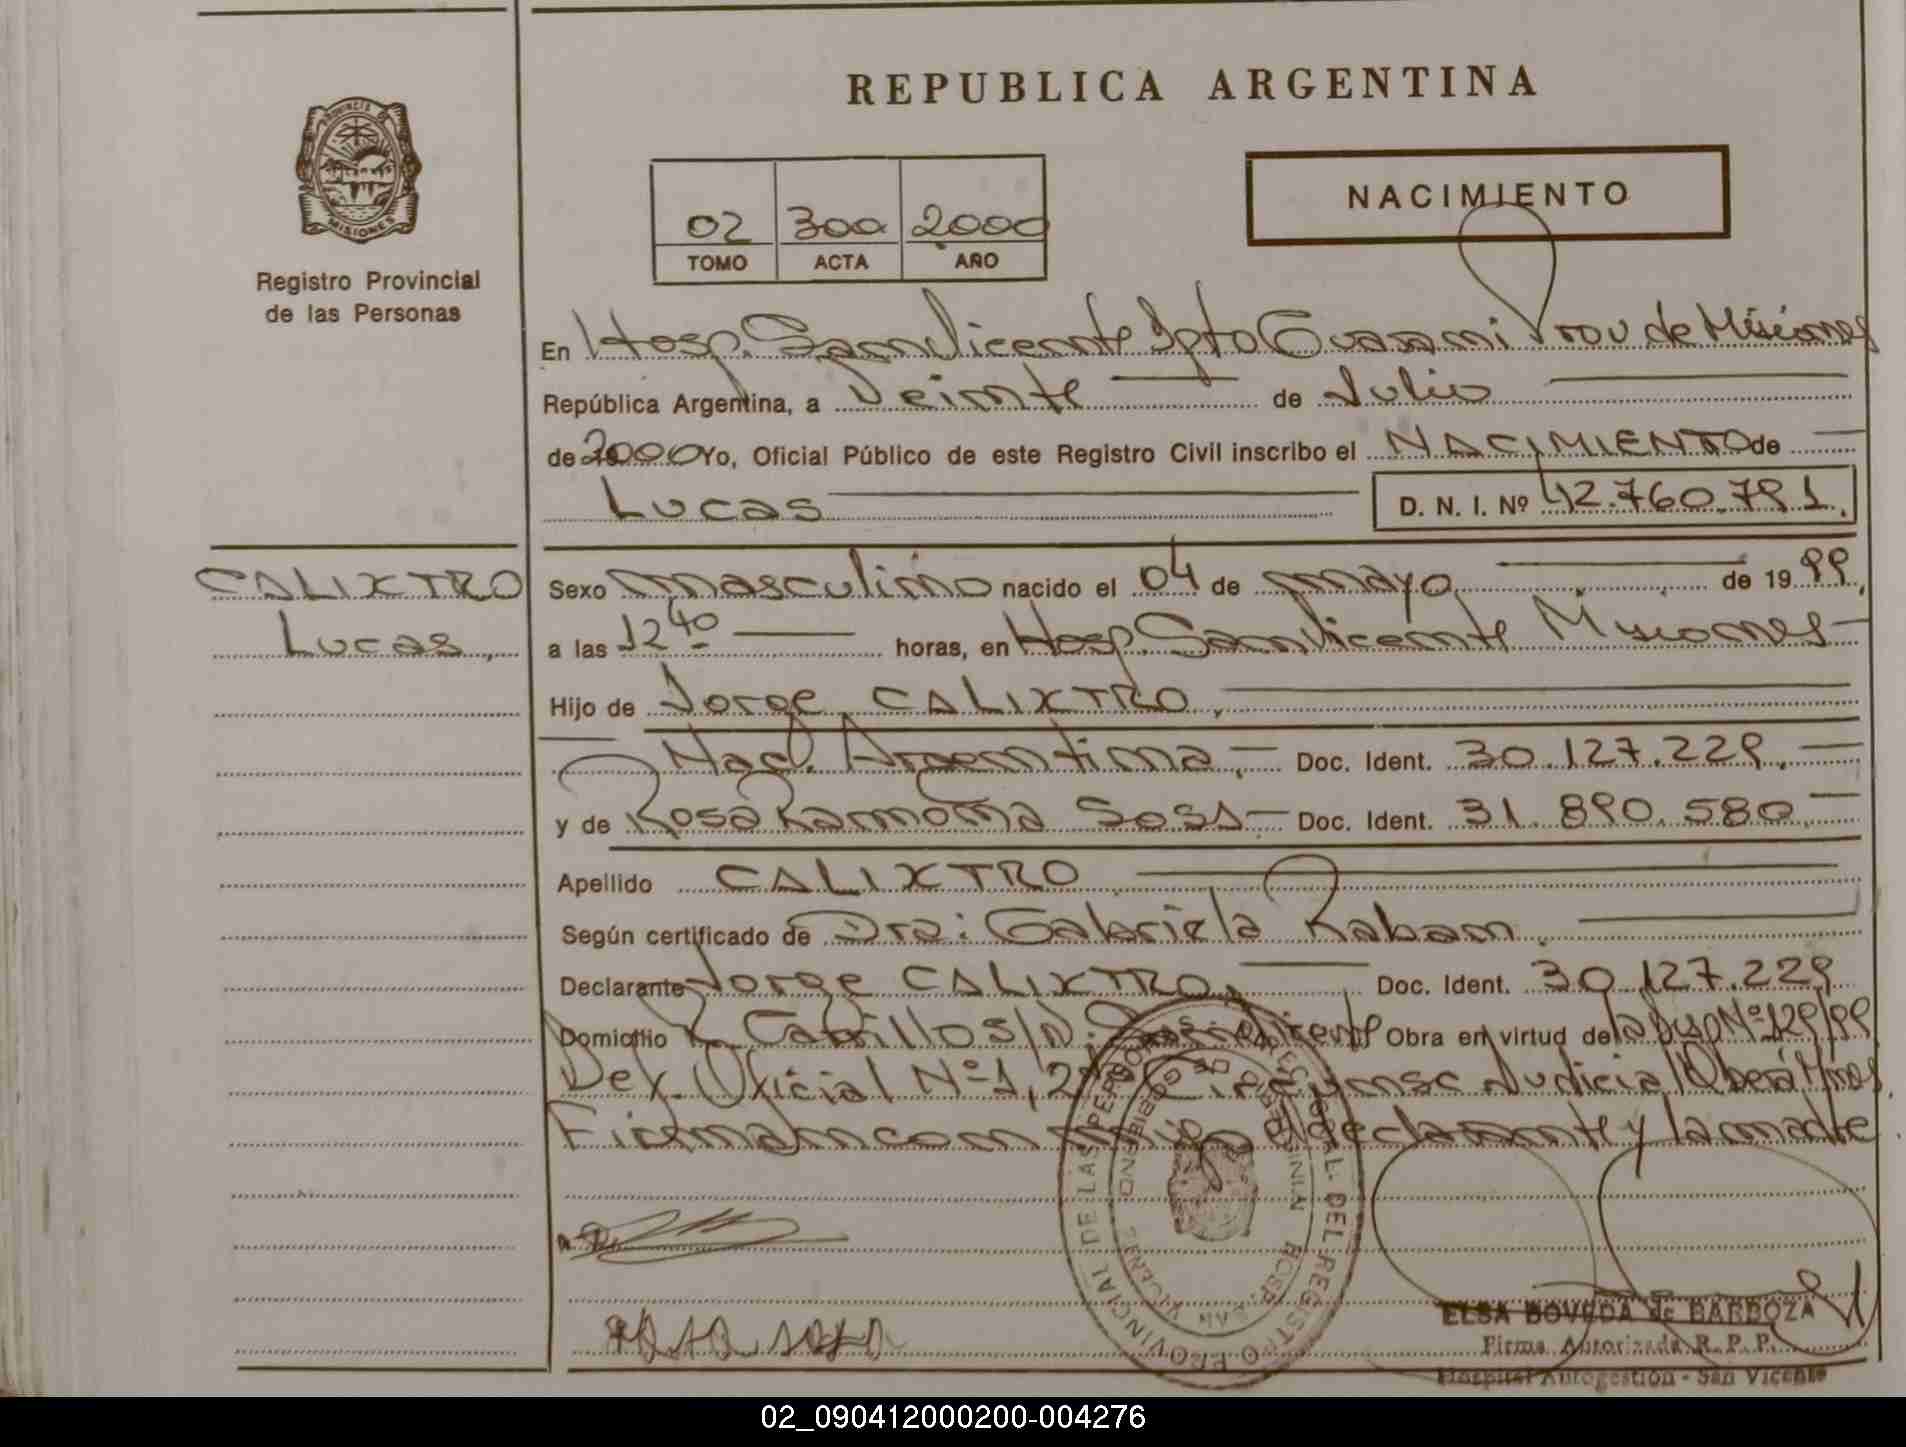 REPUBLICA ARGENTINA
PROVINCIA DE
MISIONES
Registro Provincial
de las Personas
02 300 2000
TOMO ACTA AÑO
NACIMIENTO
En Hosp. San Vicente Dpto Guarani Prov de Misiones
República Argentina, a Veinte de Julio
de 2000 Yo, Oficial Público de este Registro Civil inscribo el NACIMIENTO de
Lucas D. N. I. Nº 42.760.791.
CALIXTRO
Lucas,
Sexo masculino nacido el 04 de mayo de 1999,
a las 12 40 horas, en Hosp. San Vicente Misiones
Hijo de Jorge CALIXTRO,
Nacl. Argentina, Doc. Ident. 30.127.229,
y de Rosa Ramona SOSA Doc. Ident. 31.890.580,
Apellido CALIXTRO
Según certificado de Dra: Gabriela Raban
Declarante Jorge CALIXTRO, Doc. Ident. 30.127.229
Domicilio R. Cabrillo S/N. San Vicente Obra en virtud de la Nº 129/99
Def. Oficial Nº 1, 2da Circunsc. Judicial Oberá Mnes.
Firman conmigo el declarante y la madre.
DEL REGISTRO PROVINCIAL DE LAS PERSONAS
MINISTERIO DE GOBIERNO
HOSP. SAN VICENTE
ELSA BOVEDA de BARBOZA
Firma Autorizada R. P. P.
Hospital Autogestión - San Vicente
02_090412000200-004276